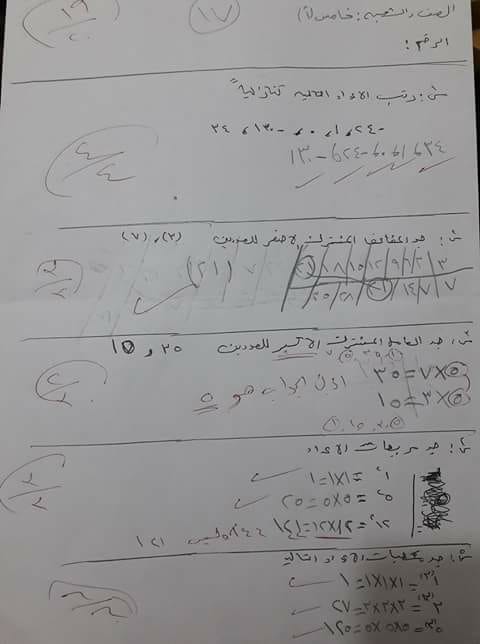 ١٩
٢٠
١٧
الصف والشعبة: خامس (أ)
الرقم:
س: رتب الاعداد التالية تنازلياً
-٢٤، ١، ٠، -١٣٠، ٣٤
٣٤، ١، ٠، -٢٤، -١٣٠
٤/٤
س: جد المضاعف المشترك الاصغر للعددين (٣)، (٧)
٣/٦/٩/١٢/١٥/١٨/٢١
(٢١)
٧/١٤/٢١/٢٨/٣٥
س: جد العامل المشترك الاكبر للعددين ٣٥ و ١٥
٥×٧=٣٥
اذن الجواب هو ٥
٥×٣=١٥
س: جد مربعات الاعداد
١²=١×١=١
٥²=٥×٥=٢٥
١٢²=١٢×١٢=١٤٤
١٤٤ وليس ١٢١
س: جد مكعبات الاعداد التالية
١(٣)=١×١×١=١
٣(٣)=٣×٣×٣=٢٧
٥(٣)=٥×٥×٥=١٢٥